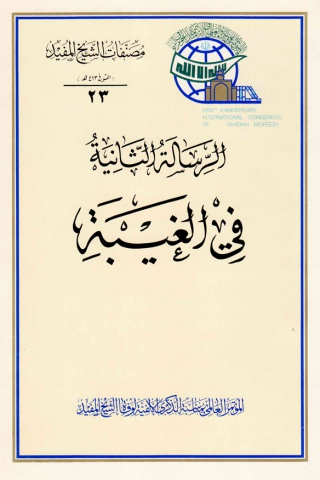 مصنفات الشيخ المفيد
(المتوفى ٤١٣ هـ)
٢٣
1000th ANNIVERSARY
INTERNATIONAL CONGERESS
OF (SHEIKH MOFEED)
الرسالة الثانية
في الغيبة
المؤتمر العالمي بمناسبة الذكرى الألفية لوفاة الشيخ المفيد